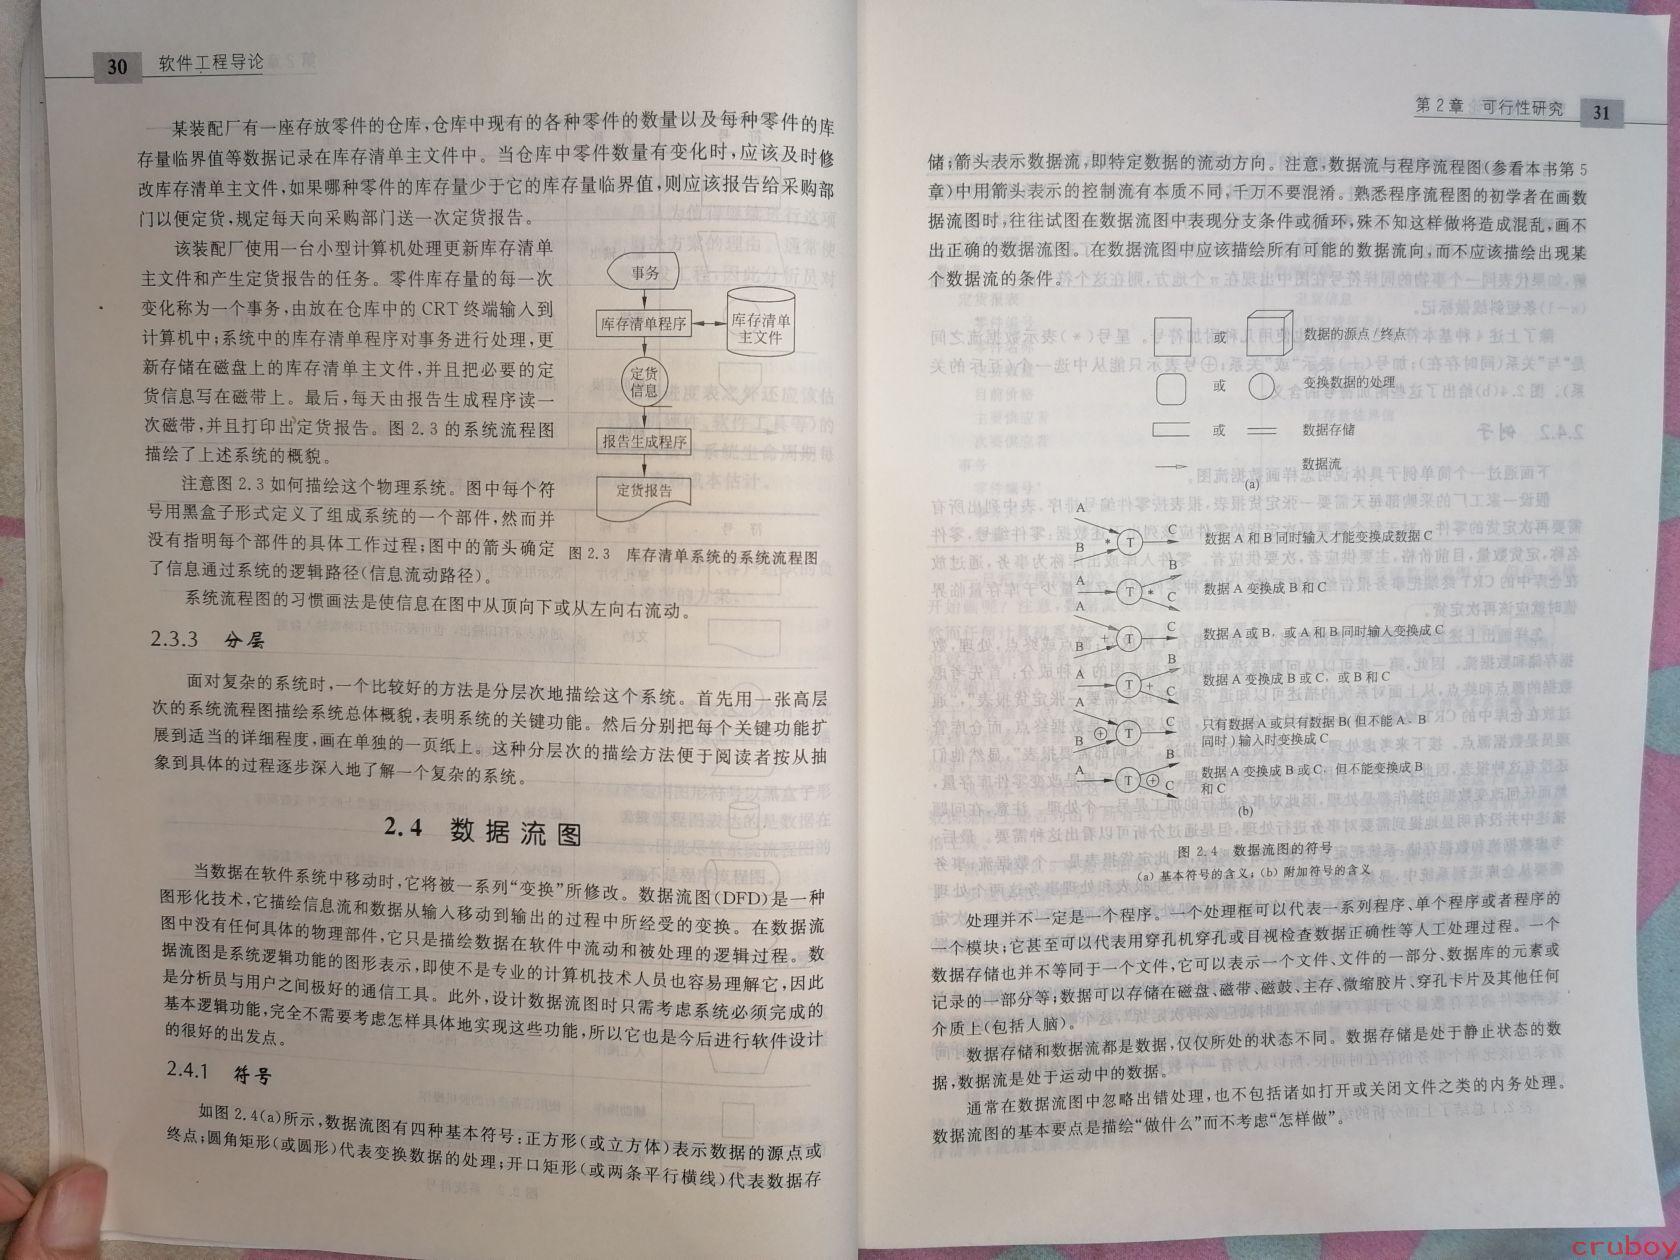 30 软件工程导论
某装配厂有一座存放零件的仓库,仓库中现有的各种零件的数量以及每种零件的库
存量临界值等数据记录在库存清单主文件中。当仓库中零件数量有变化时,应该及时修
改库存清单主文件,如果哪种零件的库存量少于它的库存量临界值,则应该报告给采购部
门以便定货,规定每天向采购部门送一次定货报告。
该装配厂使用一台小型计算机处理更新库存清单
主文件和产生定货报告的任务。零件库存量的每一次
变化称为一个事务,由放在仓库中的 CRT 终端输入到
计算机中;系统中的库存清单程序对事务进行处理,更
新存储在磁盘上的库存清单主文件,并且把必要的定
货信息写在磁带上。最后,每天由报告生成程序读一
次磁带,并且打印出定货报告。图 2.3 的系统流程图
描绘了上述系统的概貌。
注意图 2.3 如何描绘这个物理系统。图中每个符
号用黑盒子形式定义了组成系统的一个部件,然而并
没有指明每个部件的具体工作过程;图中的箭头确定
了信息通过系统的逻辑路径(信息流动路径)。
事务
库存清单程序
库存清单
主文件
定货
信息
报告生成程序
定货报告
图 2.3 库存清单系统的系统流程图
系统流程图的习惯画法是使信息在图中从顶向下或从左向右流动。
2.3.3 分层
面对复杂的系统时,一个比较好的方法是分层次地描绘这个系统。首先用一张高层
次的系统流程图描绘系统总体概貌,表明系统的关键功能。然后分别把每个关键功能扩
展到适当的详细程度,画在单独的一页纸上。这种分层次的描绘方法便于阅读者按从抽
象到具体的过程逐步深入地了解一个复杂的系统。
2.4 数据流图
当数据在软件系统中移动时,它将被一系列“变换”所修改。数据流图(DFD)是一种
图形化技术,它描绘信息流和数据从输入移动到输出的过程中所经受的变换。在数据流
图中没有任何具体的物理部件,它只是描绘数据在软件中流动和被处理的逻辑过程。数
据流图是系统逻辑功能的图形表示,即使不是专业的计算机技术人员也容易理解它,因此
是分析员与用户之间极好的通信工具。此外,设计数据流图时只需考虑系统必须完成的
基本逻辑功能,完全不需要考虑怎样具体地实现这些功能,所以它也是今后进行软件设计
的很好的出发点。
2.4.1 符号
如图 2.4(a)所示,数据流图有四种基本符号:正方形(或立方体)表示数据的源点或
终点;圆角矩形(或圆形)代表变换数据的处理;开口矩形(或两条平行横线)代表数据存
第 2 章 可行性研究 31
储;箭头表示数据流,即特定数据的流动方向。注意,数据流与程序流程图(参看本书第 5
章)中用箭头表示的控制流有本质不同,千万不要混淆。熟悉程序流程图的初学者在画数
据流图时,往往试图在数据流图中表现分支条件或循环,殊不知这样做将造成混乱,画不
出正确的数据流图。在数据流图中应该描绘所有可能的数据流向,而不应该描绘出现某
个数据流的条件。
或 数据的源点/终点
或 变换数据的处理
或 数据存储
数据流
(a)
A
B
*
T
C
数据 A 和 B 同时输入才能变换成数据 C
A
T
*
B
C
数据 A 变换成 B 和 C
A
B
+
T
C
数据 A 或 B,或 A 和 B 同时输入变换成 C
A
T
+
B
C
数据 A 变换成 B 或 C,或 B 和 C
A
B
⊕
T
C
只有数据 A 或只有数据 B(但不能 A、B
同时)输入时变换成 C
A
T
⊕
B
C
数据 A 变换成 B 或 C,但不能变换成 B
和 C
(b)
图 2.4 数据流图的符号
(a) 基本符号的含义;(b) 附加符号的含义
处理并不一定是一个程序。一个处理框可以代表一系列程序、单个程序或者程序的
一个模块;它甚至可以代表用穿孔机穿孔或目视检查数据正确性等人工处理过程。一个
数据存储也并不等同于一个文件,它可以表示一个文件、文件的一部分、数据库的元素或
记录的一部分等;数据可以存储在磁盘、磁带、磁鼓、主存、微缩胶片、穿孔卡片及其他任何
介质上(包括人脑)。
数据存储和数据流都是数据,仅仅所处的状态不同。数据存储是处于静止状态的数
据,数据流是处于运动中的数据。
通常在数据流图中忽略出错处理,也不包括诸如打开或关闭文件之类的内务处理。
数据流图的基本要点是描绘“做什么”而不考虑“怎样做”。
cruboy